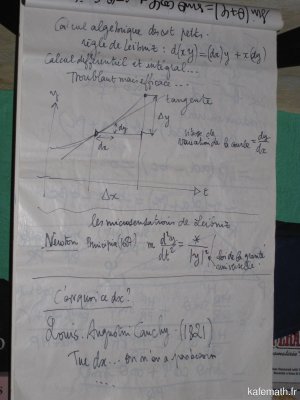 Sin(θ+φ) = sinθ cosφ +
Calcul algébrique des inft petits.
règle de Leibniz : d(xy) = (dx)y + x(dy)
Calcul différentiel et intégral...
Troublant mais efficace...
y
tangente
Δy
dy
dx
vitesse de variation de la courbe = dy/dx
Δx
t
les microsensations de Leibniz
Newton : Principia (1687) m d²y/dt² = * / |y|²
loi de la gravité universelle
C'est quoi ce dx ?
Louis Augustin Cauchy (1821)
Tue dx... on n'en a pas besoin
....
kafemath.fr